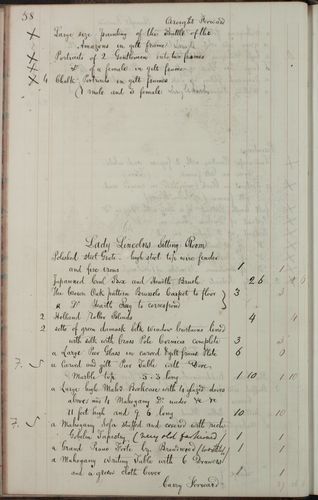 58
Brought Forward
x Large size painting of the Battle of the
Amazons in gilt frame
x Portraits of 2 Gentlemen in frames
x Do of a female in gilt frame
x 4 Chalk Portraits in gilt frames
(1 male and 3 female
Lady Lincolns Sitting Room
Polished steel Grate high steel top wire fender
and fire irons 1 1
Japanned Coal Box and Hearth Brush 2 6 2 6
The Crown Oak pattern Brussels Carpet to floor 3
& Do Hearth Rug to correspond
2 Holland Roller Blinds 4 4
2 setts of green damask silk window curtains lined
with silk with Cross Pole Cornices complete 3 3
a Large Pier Glass in carved & gilt frame Plate 6 6
7. S a Carved and gilt Pier Table with
Marble top 5.3 long 1 10 1 10
a Large high Mahy Bookcase with 4 glazed doors
above and 4 Mahogany Do under
11 feet high and 9 6 long 10 10
7. S a Mahogany Sofa stuffed and covered with rich
Goblin Tapestry (very old fashioned) 1 1
a Grand Piano Forte by Broadwood (worthless) 1 1
a Mahogany Writing Table with 6 Drawers
and a green cloth cover 1 1
Carry Forward